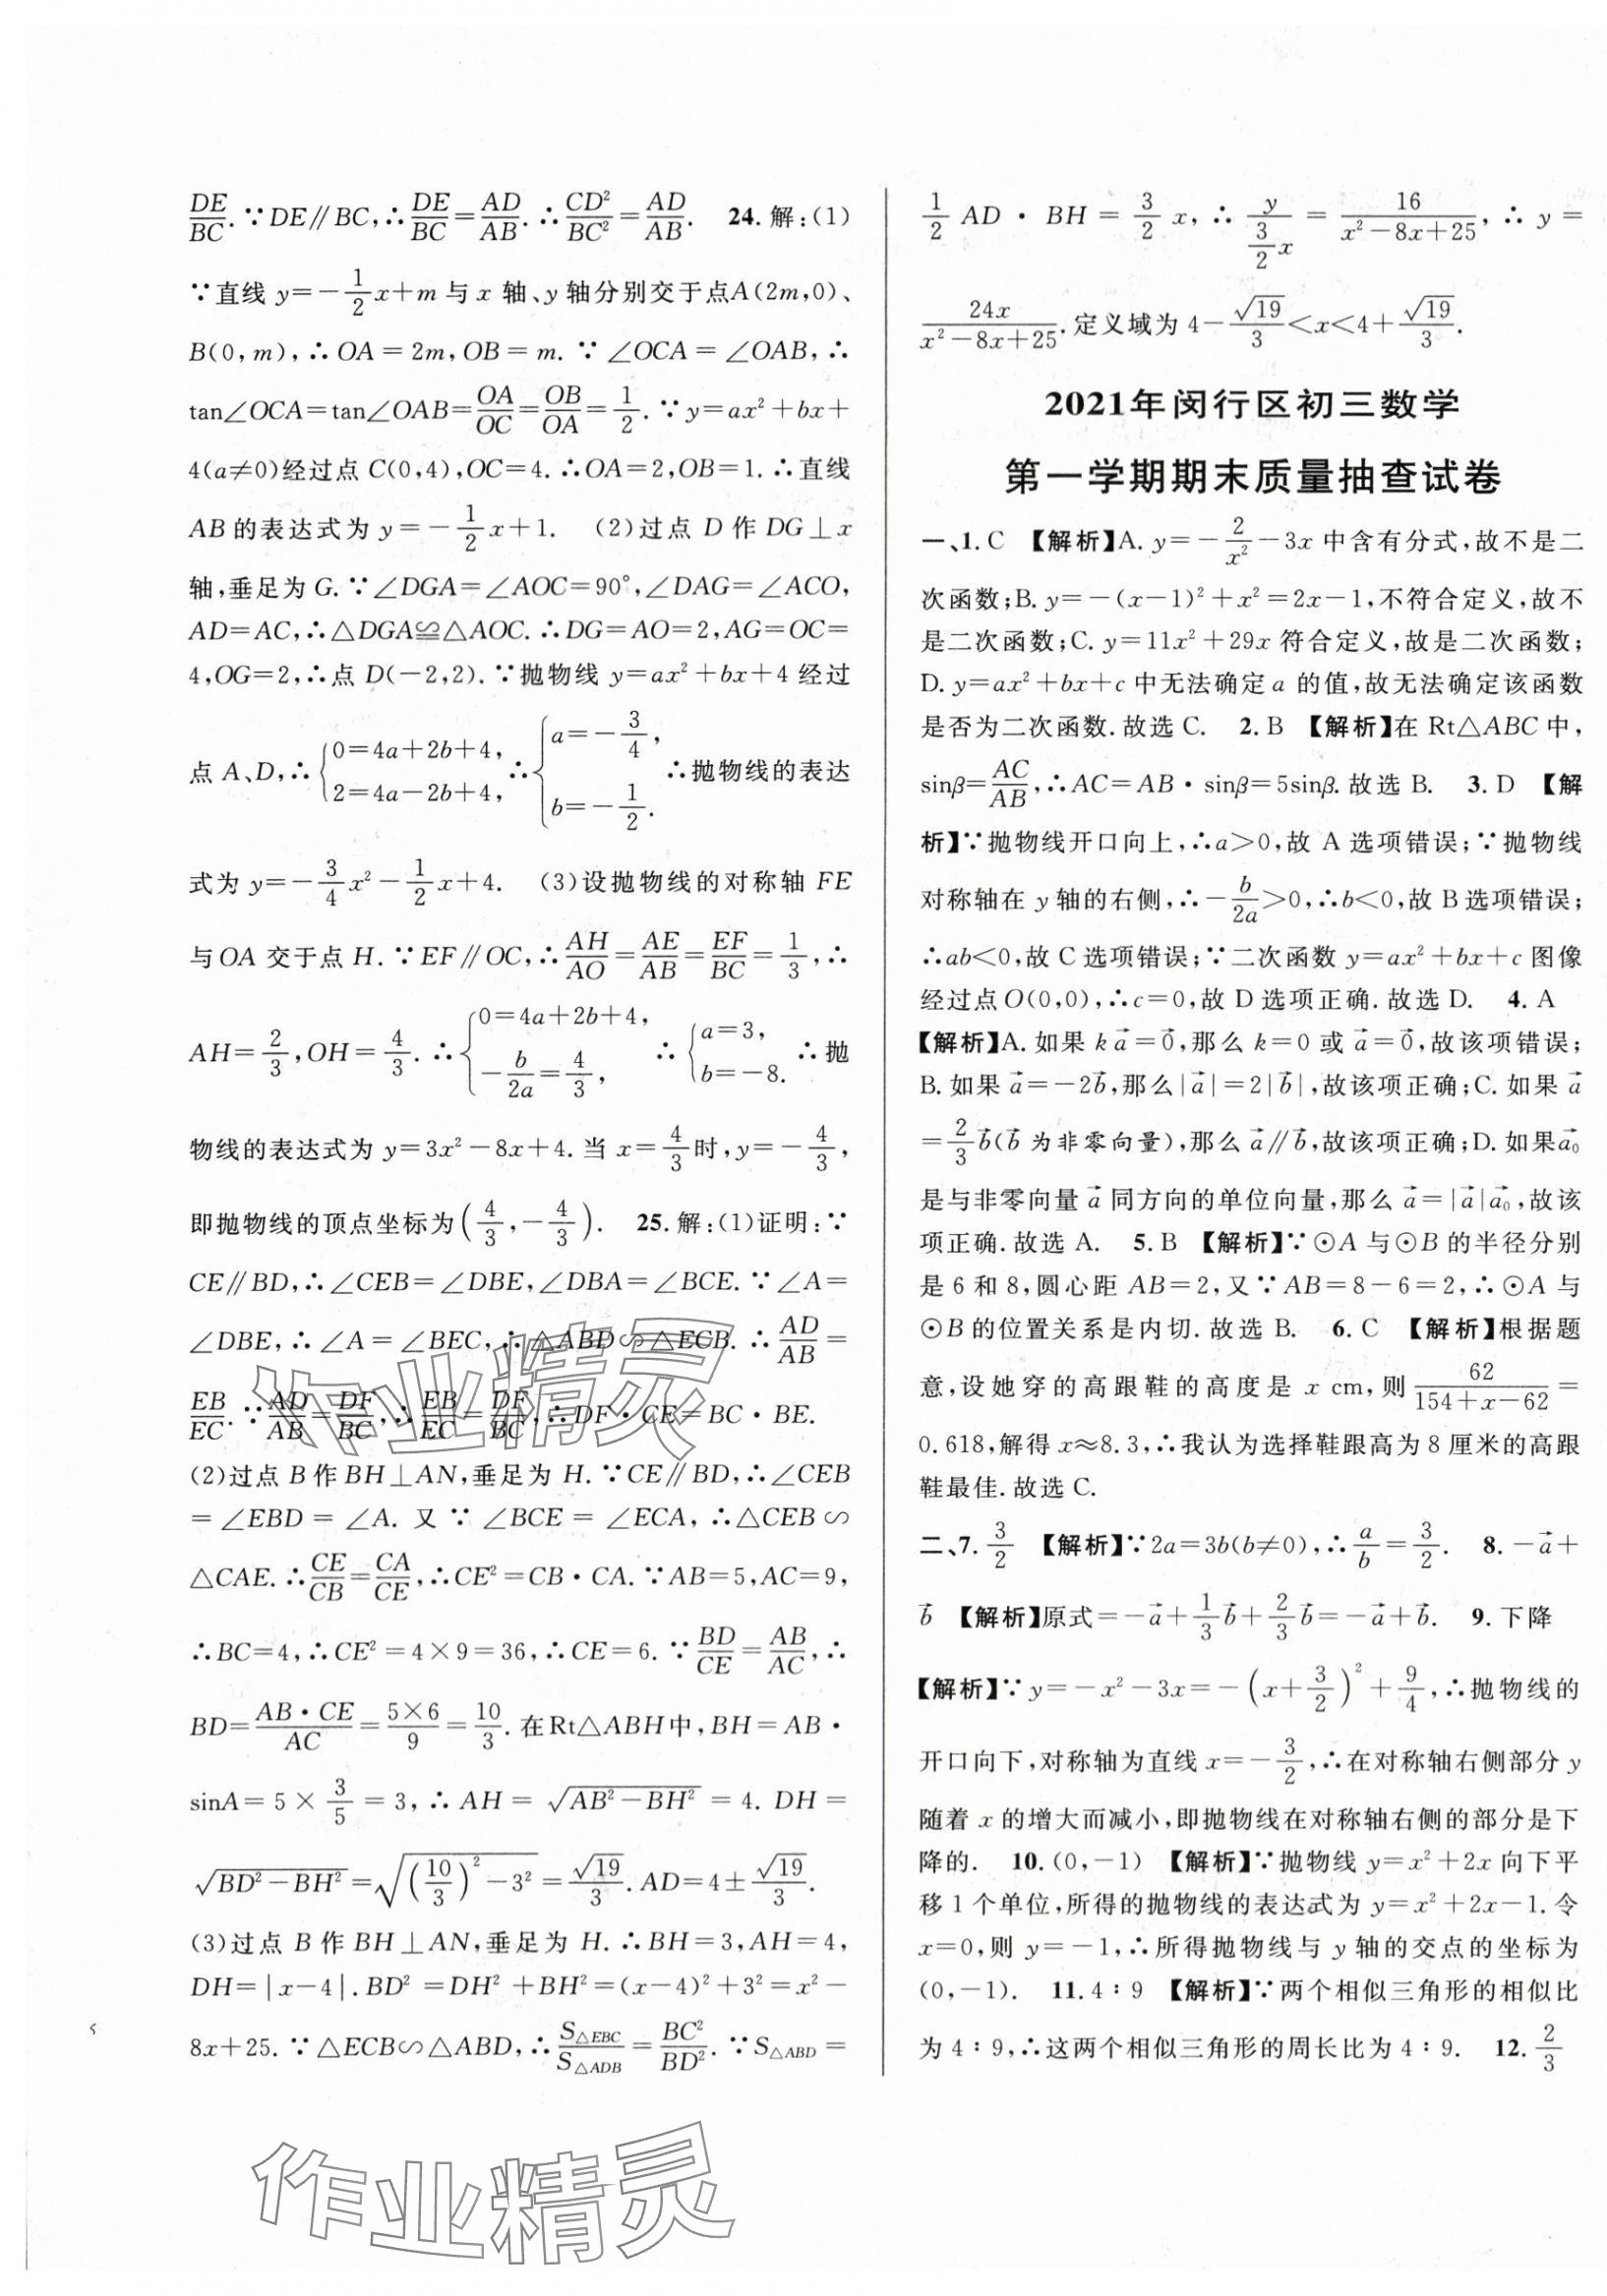 DE/BC.∵DE∥BC,∴DE/BC=AD/AB.∴CD²/BC²=AD/AB. 24.解:(1)
∵直线 y=-1/2x+m 与 x 轴、y 轴分别交于点A(2m,0)、
B(0,m),∴OA=2m,OB=m.∵∠OCA=∠OAB,∴
tan∠OCA=tan∠OAB=OA/OC=OB/OA=1/2.∵y=ax²+bx+
4(a≠0)经过点 C(0,4),OC=4.∴OA=2,OB=1.∴直线
AB 的表达式为 y=-1/2x+1. (2)过点 D 作 DG⊥x
轴,垂足为 G.∵∠DGA=∠AOC=90°,∠DAG=∠ACO,
AD=AC,∴△DGA≌△AOC.∴DG=AO=2,AG=OC=
4,OG=2,∴点 D(-2,2).∵抛物线 y=ax²+bx+4 经过
点 A、D,∴{0=4a+2b+4, 2=4a-2b+4,∴{a=-3/4, b=-1/2.∴抛物线的表达
式为 y=-3/4x²-1/2x+4. (3)设抛物线的对称轴 FE
与 OA 交于点 H.∵EF∥OC,∴AH/AO=AE/AB=EF/BC=1/3,∴
AH=2/3,OH=4/3.∴{0=4a+2b+4, -b/2a=4/3,∴{a=3, b=-8.∴抛
物线的表达式为 y=3x²-8x+4.当 x=4/3时,y=-4/3,
即抛物线的顶点坐标为(4/3,-4/3). 25.解:(1)证明:∵
CE∥BD,∴∠CEB=∠DBE,∠DBA=∠BCE.∵∠A=
∠DBE,∴∠A=∠BEC,∴△ABD∽△ECB.∴AD/AB=
EB/EC.∵AD/AB=DF/BC,∴EB/EC=DF/BC,∴DF·CE=BC·BE.
(2)过点 B 作 BH⊥AN,垂足为 H.∵CE∥BD,∴∠CEB
=∠EBD=∠A.又∵∠BCE=∠ECA,∴△CEB∽
△CAE.∴CE/CB=CA/CE,∴CE²=CB·CA.∵AB=5,AC=9,
∴BC=4,∴CE²=4×9=36,∴CE=6.∵BD/CE=AB/AC,∴
BD=AB·CE/AC=5×6/9=10/3.在Rt△ABH中,BH=AB·
sinA=5×3/5=3,∴AH=√(AB²-BH²)=4.DH=
√(BD²-BH²)=√((10/3)²-3²)=√19/3.AD=4±√19/3.
(3)过点 B 作 BH⊥AN,垂足为 H.∴BH=3,AH=4,
DH=|x-4|.BD²=DH²+BH²=(x-4)²+3²=x²-
8x+25.∵△ECB∽△ABD,∴S△EBC/S△ADB=BC²/BD².∵S△ABD=
1/2AD·BH=3/2x,∴y/(3/2x)=16/(x²-8x+25),∴y=
24x/(x²-8x+25).定义域为 4-√19/3<x<4+√19/3.
2021年闵行区初三数学
第一学期期末质量抽查试卷
一、1.C 【解析】A.y=-2/x²-3x 中含有分式,故不是二
次函数;B.y=-(x-1)²+x²=2x-1,不符合定义,故不
是二次函数;C.y=11x²+29x 符合定义,故是二次函数;
D.y=ax²+bx+c 中无法确定 a 的值,故无法确定该函数
是否为二次函数.故选 C. 2.B 【解析】在 Rt△ABC 中,
sinβ=AC/AB,∴AC=AB·sinβ=5sinβ.故选 B. 3.D 【解
析】∵抛物线开口向上,∴a>0,故 A 选项错误;∵抛物线
对称轴在 y 轴的右侧,∴-b/2a>0,∴b<0,故 B 选项错误;
∴ab<0,故 C 选项错误;∵二次函数 y=ax²+bx+c 图像
经过点 O(0,0),∴c=0,故 D 选项正确.故选 D. 4.A
【解析】A.如果 ka⃗=0⃗,那么 k=0 或 a⃗=0⃗,故该项错误;
B.如果 a⃗=-2b⃗,那么|a⃗|=2|b⃗|,故该项正确;C.如果 a⃗
=2/3b⃗(b⃗ 为非零向量),那么 a⃗∥b⃗,故该项正确;D.如果a⃗₀
是与非零向量 a⃗ 同方向的单位向量,那么 a⃗=|a⃗|a⃗₀,故该
项正确.故选 A. 5.B 【解析】∵⊙A 与⊙B 的半径分别
是 6 和 8,圆心距 AB=2,又∵AB=8-6=2,∴⊙A 与
⊙B 的位置关系是内切.故选 B. 6.C 【解析】根据题
意,设她穿的高跟鞋的高度是 x cm,则62/(154+x-62)=
0.618,解得 x≈8.3,∴我认为选择鞋跟高为 8 厘米的高跟
鞋最佳.故选 C.
二、7.3/2 【解析】∵2a=3b(b≠0),∴a/b=3/2. 8.-a⃗+
b⃗ 【解析】原式=-a⃗+1/3b⃗+2/3b⃗=-a⃗+b⃗. 9.下降
【解析】∵y=-x²-3x=-(x+3/2)²+9/4,∴抛物线的
开口向下,对称轴为直线 x=-3/2,∴在对称轴右侧部分 y
随着 x 的增大而减小,即抛物线在对称轴右侧的部分是下
降的. 10.(0,-1) 【解析】∵抛物线 y=x²+2x 向下平
移 1 个单位,所得的抛物线的表达式为 y=x²+2x-1.令
x=0,则 y=-1,∴所得抛物线与 y 轴的交点的坐标为
(0,-1). 11.4∶9 【解析】∵两个相似三角形的相似比
为 4∶9,∴这两个相似三角形的周长比为 4∶9. 12.2/3
作业精灵
作业精灵